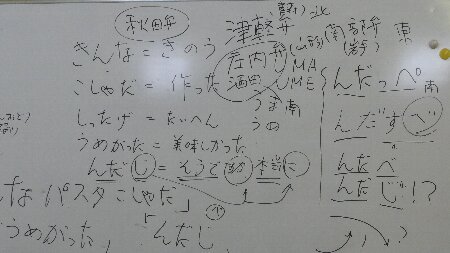 秋田弁
きんな=きのう
こしゃだ=作った
しったげ=たいへん
うめがった=美味しかった
んだじ=そうですね 本当に
なパスタこしゃだ」
うめがった」「んだじ
津軽弁 北
庄内弁(山形)
酒田
南部弁(岩手)
東
MA
ME
うま南
うめ
んだっぺ南
んだすべ
んだべ
んだじ!?
?